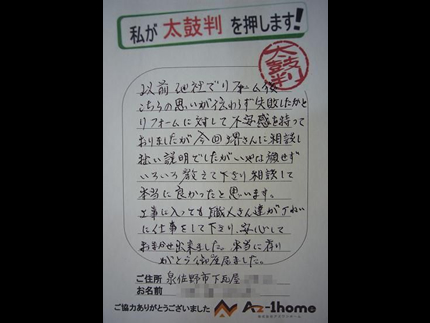 私が 太鼓判 を押します!
太鼓判
以前他社でリフォーム後
こちらの思いが伝わらず失敗したかと
リフォームに対して不安感を持って
おりましたが今回堺さんに相談し
拙い説明でしたがいやな顔せず
いろいろ教えて下さり相談して
本当に良かったと思います。
工事に入っても職人さん達が丁ねい
に仕事をして下さり、安心して
おまかせ出来ました。本当に有り
がとう御座居ました。
ご住所 泉佐野市下瓦屋
お名前
ご協力ありがとうございました Az-1home